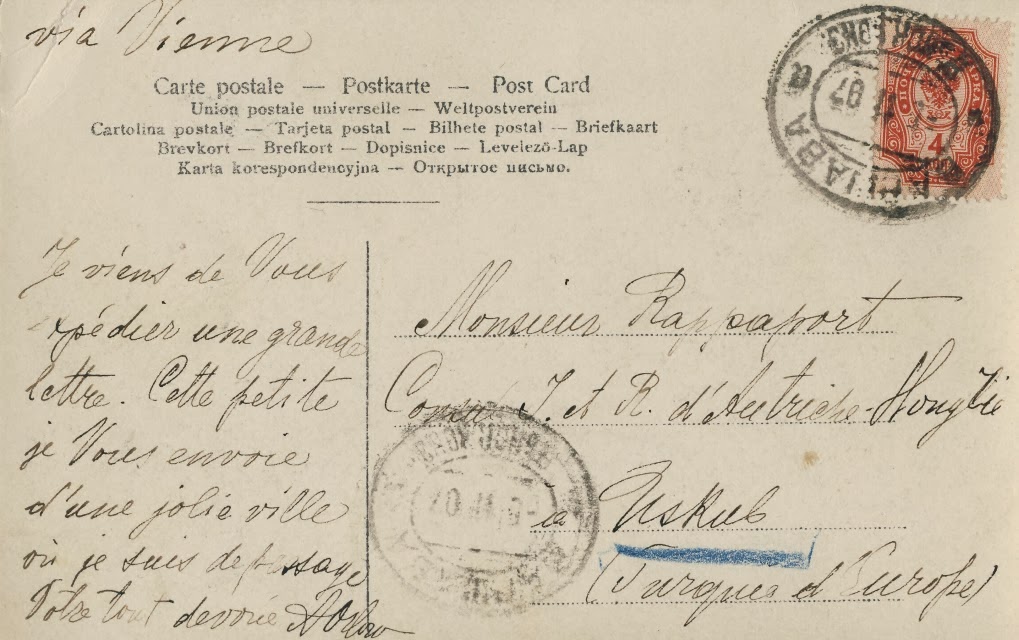 via Vienne
Carte postale — Postkarte — Post Card
Union postale universelle — Weltpostverein
Cartolina postale — Tarjeta postal — Bilhete postal — Briefkaart
Brevkort — Brefkort — Dopisnice — Levelező-Lap
Karta korespondencyjna — Открытое письмо.
4
07
Je viens de Vous
expédier une grande
lettre. Cette petite
je Vous envoie
d'une jolie ville
où je suis de passage
Votre tout dévoué
Monsieur Rappaport
Consul I. et R. d'Autriche-Hongrie
à Uskub
(Turquie d'Europe)
07